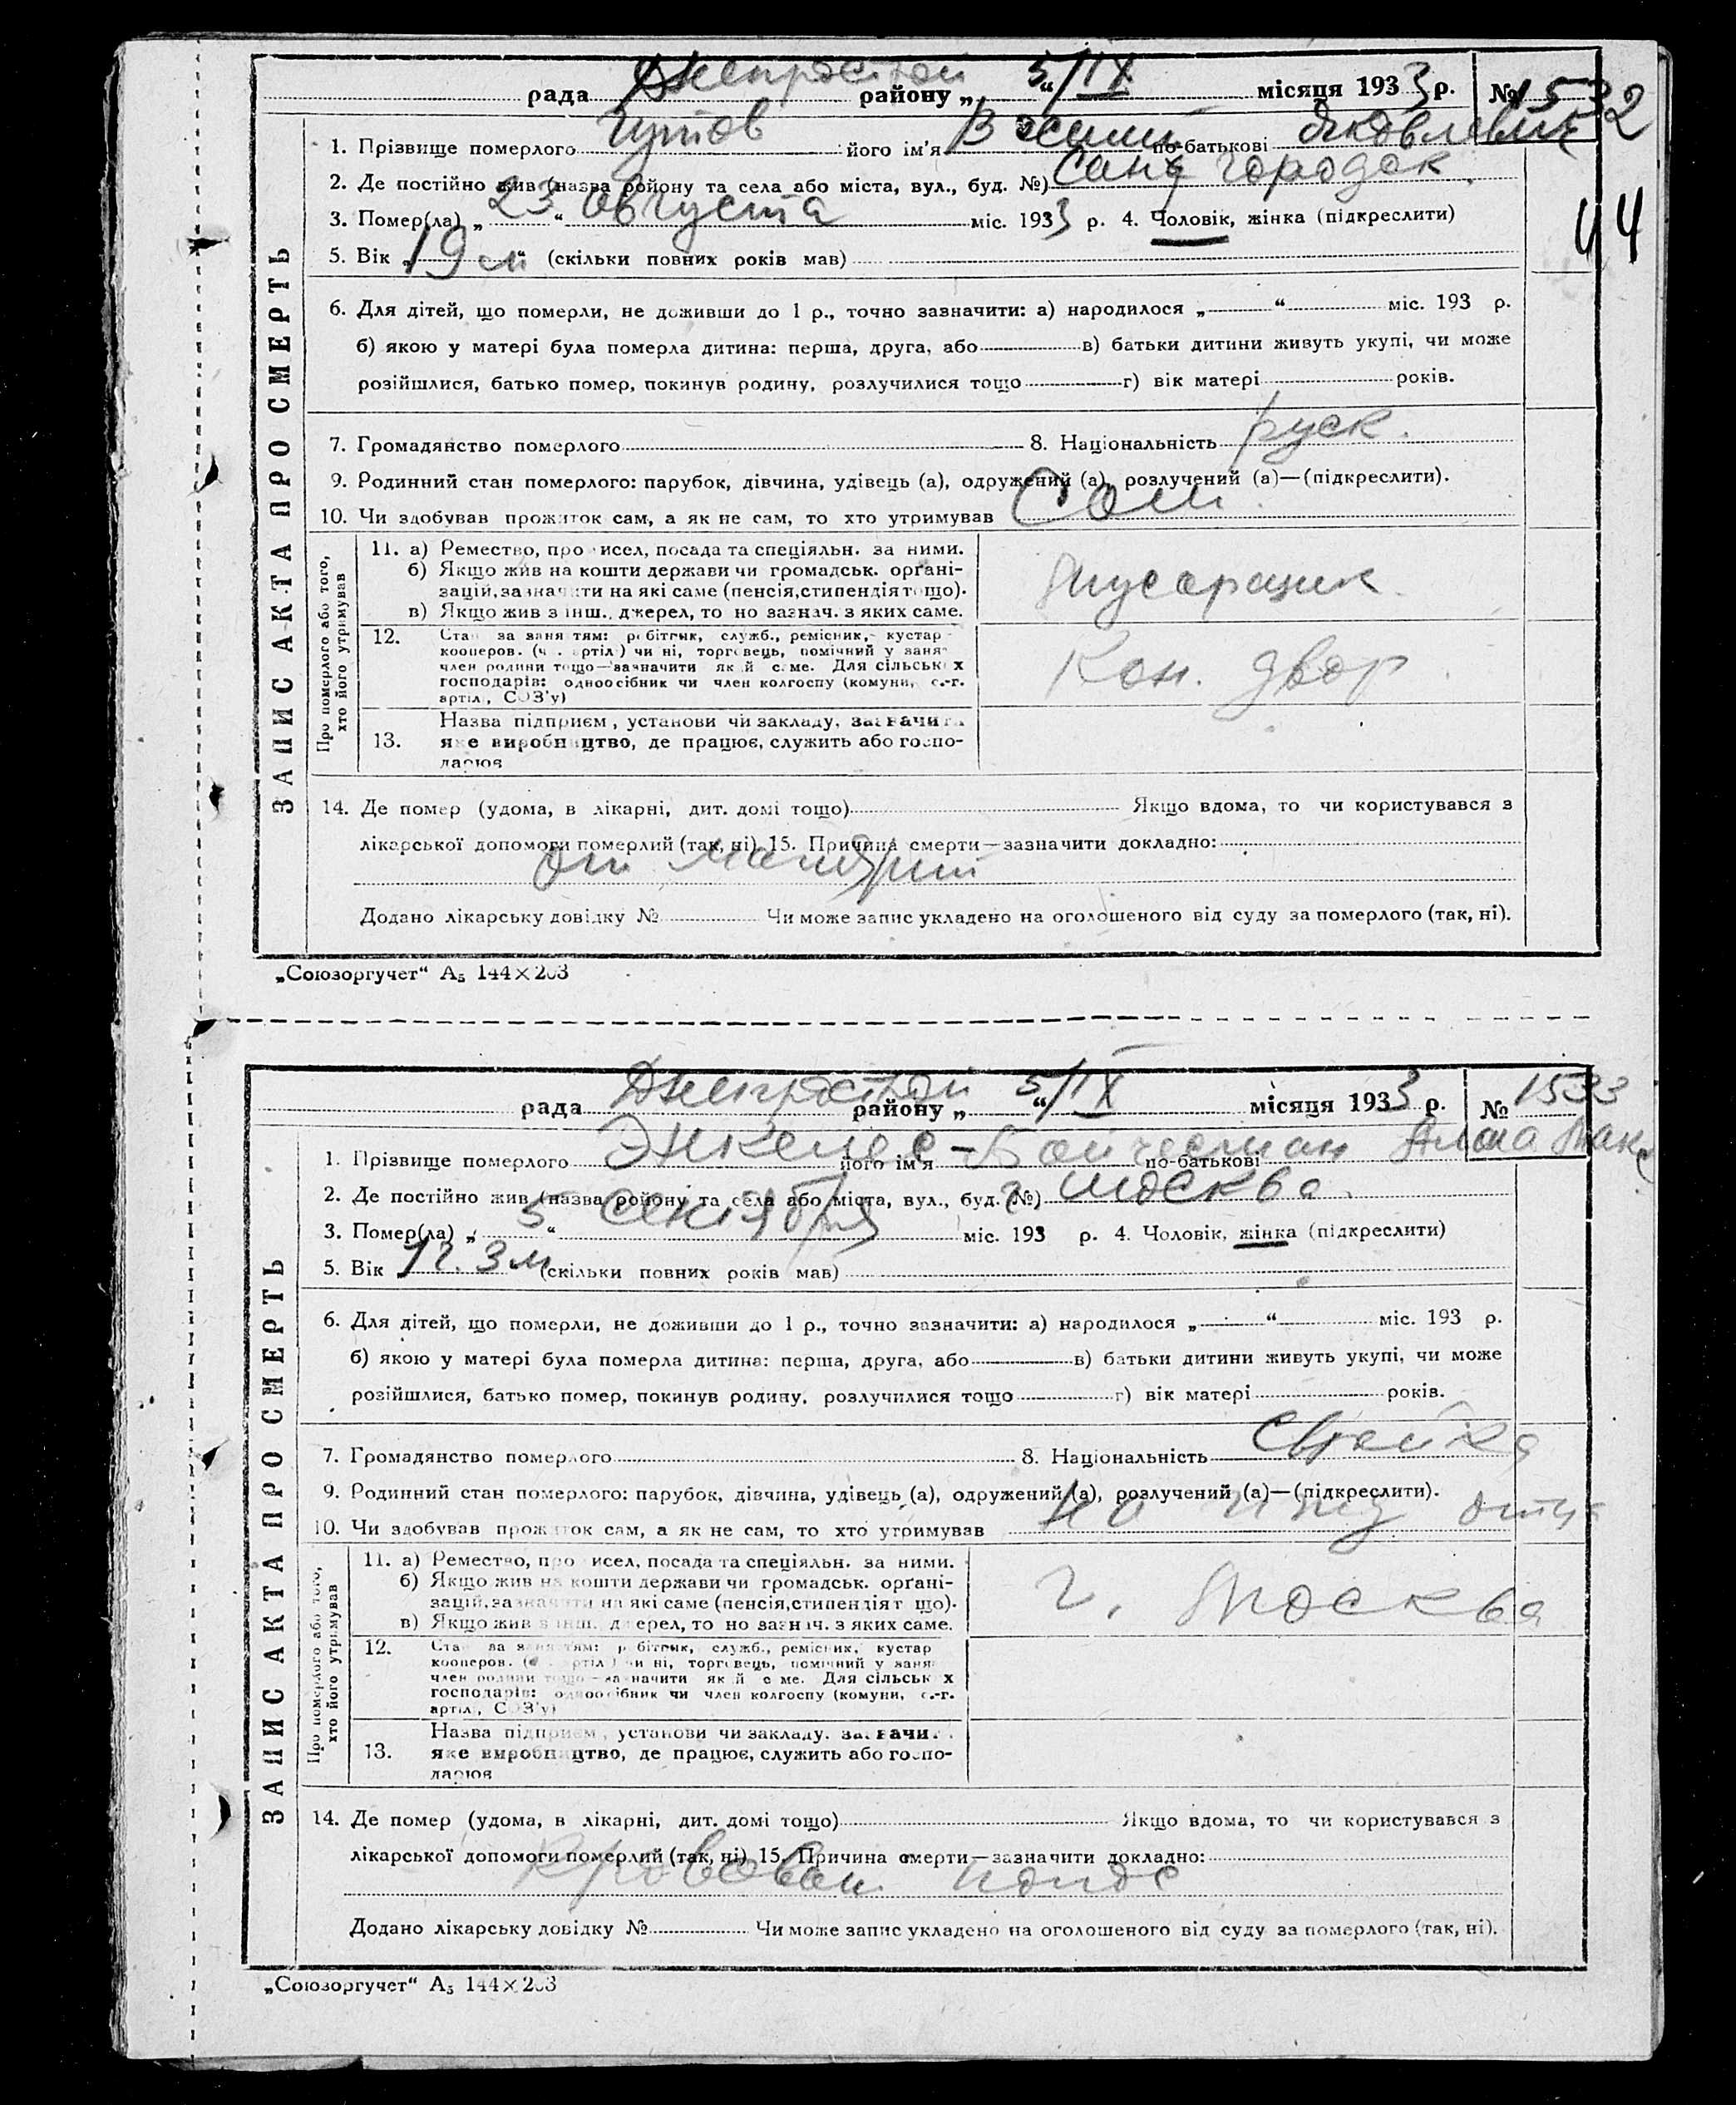 рада Днепрострой району „ 5/IX “ місяця 1933 р. № 1532
1. Прізвище померлого Гутов його ім'я Василий по-батькові Яковлевич
2. Де постійно жив (назва ройону та села або міста, вул., буд. №) городок
44
3. Помер(ла) „ 23 “ августа міс. 1933 р. 4. Чоловік, жінка (підкреслити)
5. Вік „ 19 “ (скільки повних років мав)
6. Для дітей, що померли, не доживши до 1 р., точно зазначити: а) народилося „ “ міс. 193 р.
б) якою у матері була померла дитина: перша, друга, або в) батьки дитини живуть укупі, чи може
розійшлися, батько помер, покинув родину, розлучилися тощо г) вік матері років.
7. Громадянство померлого 8. Національність руск.
9. Родинний стан померлого: парубок, дівчина, удівець (а), одружений (а), розлучений (а)—(підкреслити).
10. Чи здобував прожиток сам, а як не сам, то хто утримував Сам
ЗАПИС АКТА ПРО СМЕРТЬ
Про померлого або того, хто його утримував
11. а) Ремество, промисел, посада та спеціяльн. за ними.
б) Якщо жив на кошти держави чи громадськ. орґані-
зацій, зазначити на які саме (пенсія, стипендія тощо).
в) Якщо жив з інш. джерел, то но зазнач. з яких саме.
Мусорщик
12. Стан за заняттям: робітник, служб., ремісник, кустар
кооперов. (ч. артілі) чи ні, торговець, помічний у заня
член родини тощо—зазначити який саме. Для сільських
господарів: одноосібник чи член колгоспу (комуни, с.-г.
артілі, СОЗ'у)
Кон. двор
13. Назва підприєм., установи чи закладу, зазначити
яке виробництво, де працює, служить або госпо-
дарює
14. Де помер (удома, в лікарні, дит. домі тощо) Якщо вдома, то чи користувався з
лікарської допомоги померлий (так, ні) 15. Причина смерти—зазначити докладно:
от
Додано лікарську довідку № Чи може запис укладено на оголошеного від суду за померлого (так, ні).
„Союзоргучет“ А5 144×203
рада Днепрострой району „ 5/IX “ місяця 1933 р. № 1533
1. Прізвище померлого його ім'я по-батькові
2. Де постійно жив (назва ройону та села або міста, вул., буд. №) г. Москва
3. Помер(ла) „ 5 “ Сентября міс. 193 р. 4. Чоловік, жінка (підкреслити)
5. Вік 1 г. 3 м (скільки повних років мав)
6. Для дітей, що померли, не доживши до 1 р., точно зазначити: а) народилося „ “ міс. 193 р.
б) якою у матері була померла дитина: перша, друга, або в) батьки дитини живуть укупі, чи може
розійшлися, батько помер, покинув родину, розлучилися тощо г) вік матері років.
7. Громадянство померлого 8. Національність
9. Родинний стан померлого: парубок, дівчина, удівець (а), одружений (а), розлучений (а)—(підкреслити).
10. Чи здобував прожиток сам, а як не сам, то хто утримував на ижд отца
ЗАПИС АКТА ПРО СМЕРТЬ
Про померлого або того, хто його утримував
11. а) Ремество, промисел, посада та спеціяльн. за ними.
б) Якщо жив на кошти держави чи громадськ. орґані-
зацій, зазначити на які саме (пенсія, стипендія тощо).
в) Якщо жив з інш. джерел, то но зазнач. з яких саме.
г. Москва
12. Стан за заняттям: робітник, служб., ремісник, кустар
кооперов. (ч. артілі) чи ні, торговець, помічний у заня
член родини тощо—зазначити який саме. Для сільських
господарів: одноосібник чи член колгоспу (комуни, с.-г.
артілі, СОЗ'у)
13. Назва підприєм., установи чи закладу, зазначити
яке виробництво, де працює, служить або госпо-
дарює
14. Де помер (удома, в лікарні, дит. домі тощо) Якщо вдома, то чи користувався з
лікарської допомоги померлий (так, ні) 15. Причина смерти—зазначити докладно:
Кровавый понос
Додано лікарську довідку № Чи може запис укладено на оголошеного від суду за померлого (так, ні).
„Союзоргучет“ А5 144×203